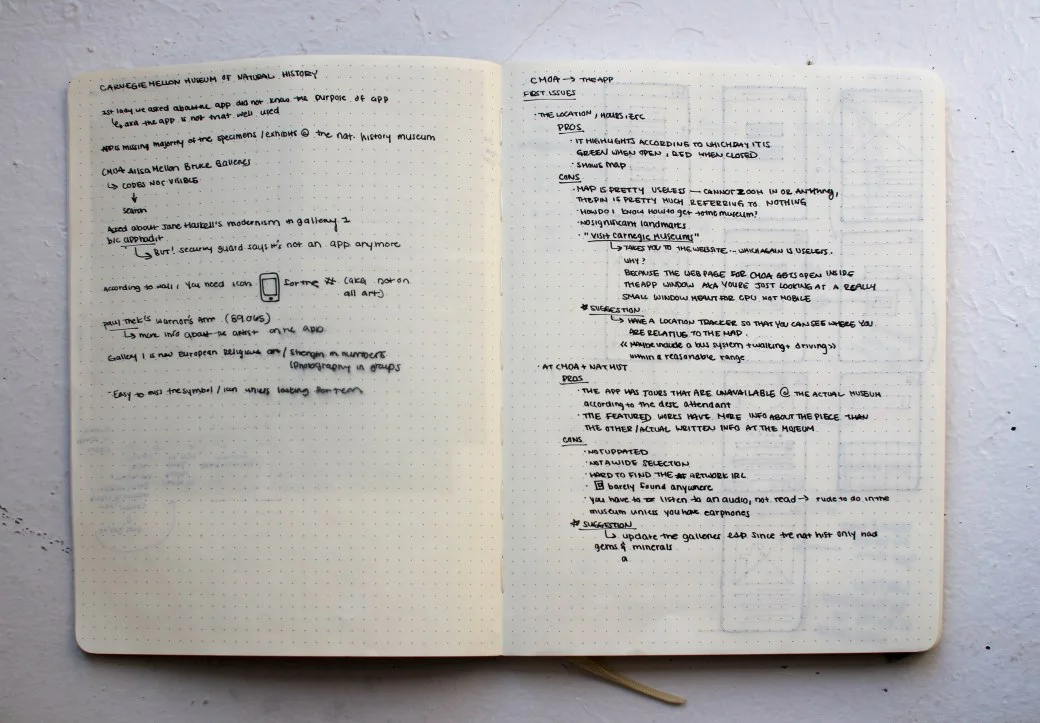 CARNEGIE MELLON MUSEUM OF NATURAL HISTORY
1st lady we asked about the app did not know the purpose of app
↳ aka the app is not that well used
APP IS missing majority of the specimens / exhibits @ the nat. history museum
CMOA Ailsa Mellon Bruce Galleries
↳ CODES NOT VISIBLE
↓
Search
Asked about Jane Haskell's modernism in gallery 1
b/c app had it
↳ BUT! security guard says it's not an app anymore
According to wall, you need icon for the # (aka not on
all art)
Paul Thek's Warrior's Arm (89,065)
↳ more info about the artist on the app
Gallery 1 is now European Religious art / Strength in numbers
(photography in groups
· Easy to miss the symbol / icon unless looking for them
CMOA → THE APP
FIRST ISSUES
· THE LOCATION, HOURS, ETC
PROS
· IT HIGHLIGHTS ACCORDING TO WHICH DAY IT IS
GREEN WHEN OPEN, RED WHEN CLOSED
· SHOWS map
CONS
· MAP IS PRETTY USELESS — CANNOT ZOOM IN OR ANYTHING,
THE PIN IS PRETTY MUCH REFERRING TO NOTHING
· HOW DO I know How to get to the museum?
· No significant landmarks
· "Visit Carnegie Museums"
↳ TAKES YOU TO THE WEBSITE ... WHICH AGAIN IS USELESS.
WHY?
BECAUSE THE WEB PAGE FOR CMOA GETS OPEN INSIDE
THE APP WINDOW AKA YOU'RE JUST LOOKING AT A REALLY
SMALL WINDOW MEANT FOR CPU NOT MOBILE
* SUGGESTION
↳ HAVE A LOCATION TRACKER SO THAT YOU CAN SEE WHERE YOU
ARE RELATIVE TO THE MAP.
<< Maybe include a bus system + walking + driving >>
within a reasonable range
· AT CMOA + NAT HIST
PROS
· THE APP HAS TOURS THAT ARE UNAVAILABLE @ THE ACTUAL MUSEUM
according to the desk attendant
· THE FEATURED WORKS HAVE MORE INFO ABOUT THE PIECE THAN
THE OTHER / ACTUAL WRITTEN INFO AT THE MUSEUM
CONS
· NOT UPDATED
· NOT A WIDE SELECTION
· HARD TO FIND THE ARTWORK IRL
· barely found anywhere
· you have to listen to an audio, not read → rude to do in the
museum unless you have earphones
* SUGGESTION
↳ update the galleries esp since the nat hist only had
gems & minerals
a